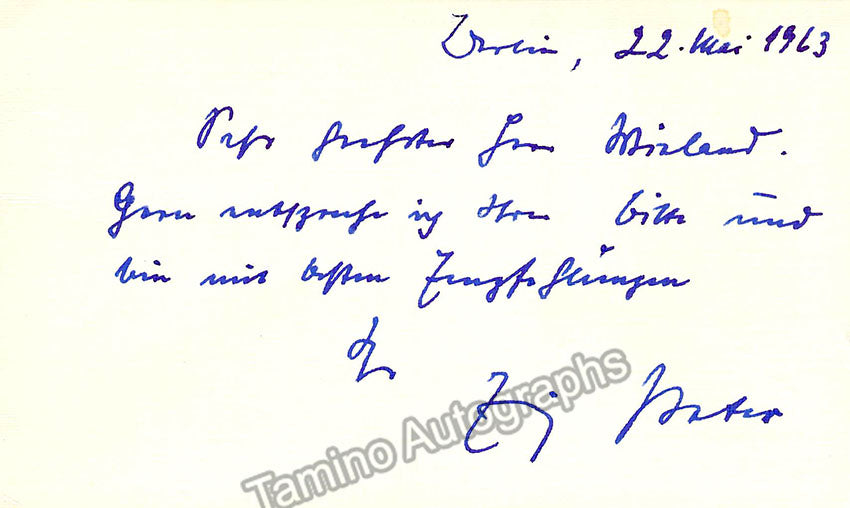 Berlin, 22. Mai 1963
Sehr geehrter Herr Wieland.
Gern entspreche ich Ihrer Bitte und
bin mit besten Empfehlungen
Ihr
Tamino Autographs